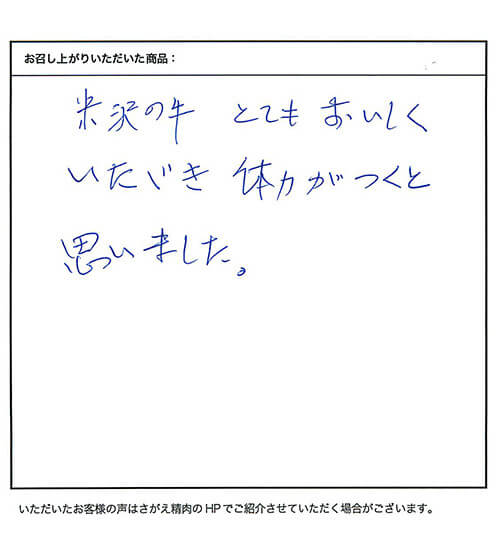 お召し上がりいただいた商品：
米沢の牛 とても おいしく
いただき 体力がつくと
思いました。
いただいたお客様の声はさがえ精肉のHPでご紹介させていただく場合がございます。